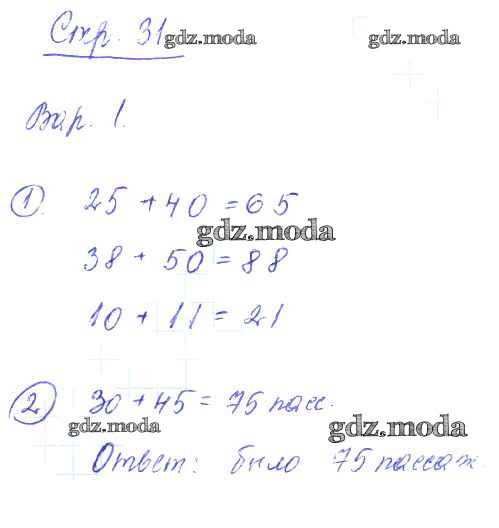 Стр. 31 gdz.moda
gdz.moda
Вар. 1.
1. 25 + 40 = 65
gdz.moda
38 + 50 = 88
10 + 11 = 21
2 30 + 45 = 75 пасс.
gdz.moda gdz.moda
Ответ: было 75 пассаж.